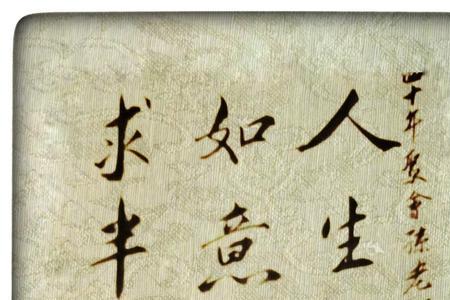 四十年聚会孫老
人生
如意
求半